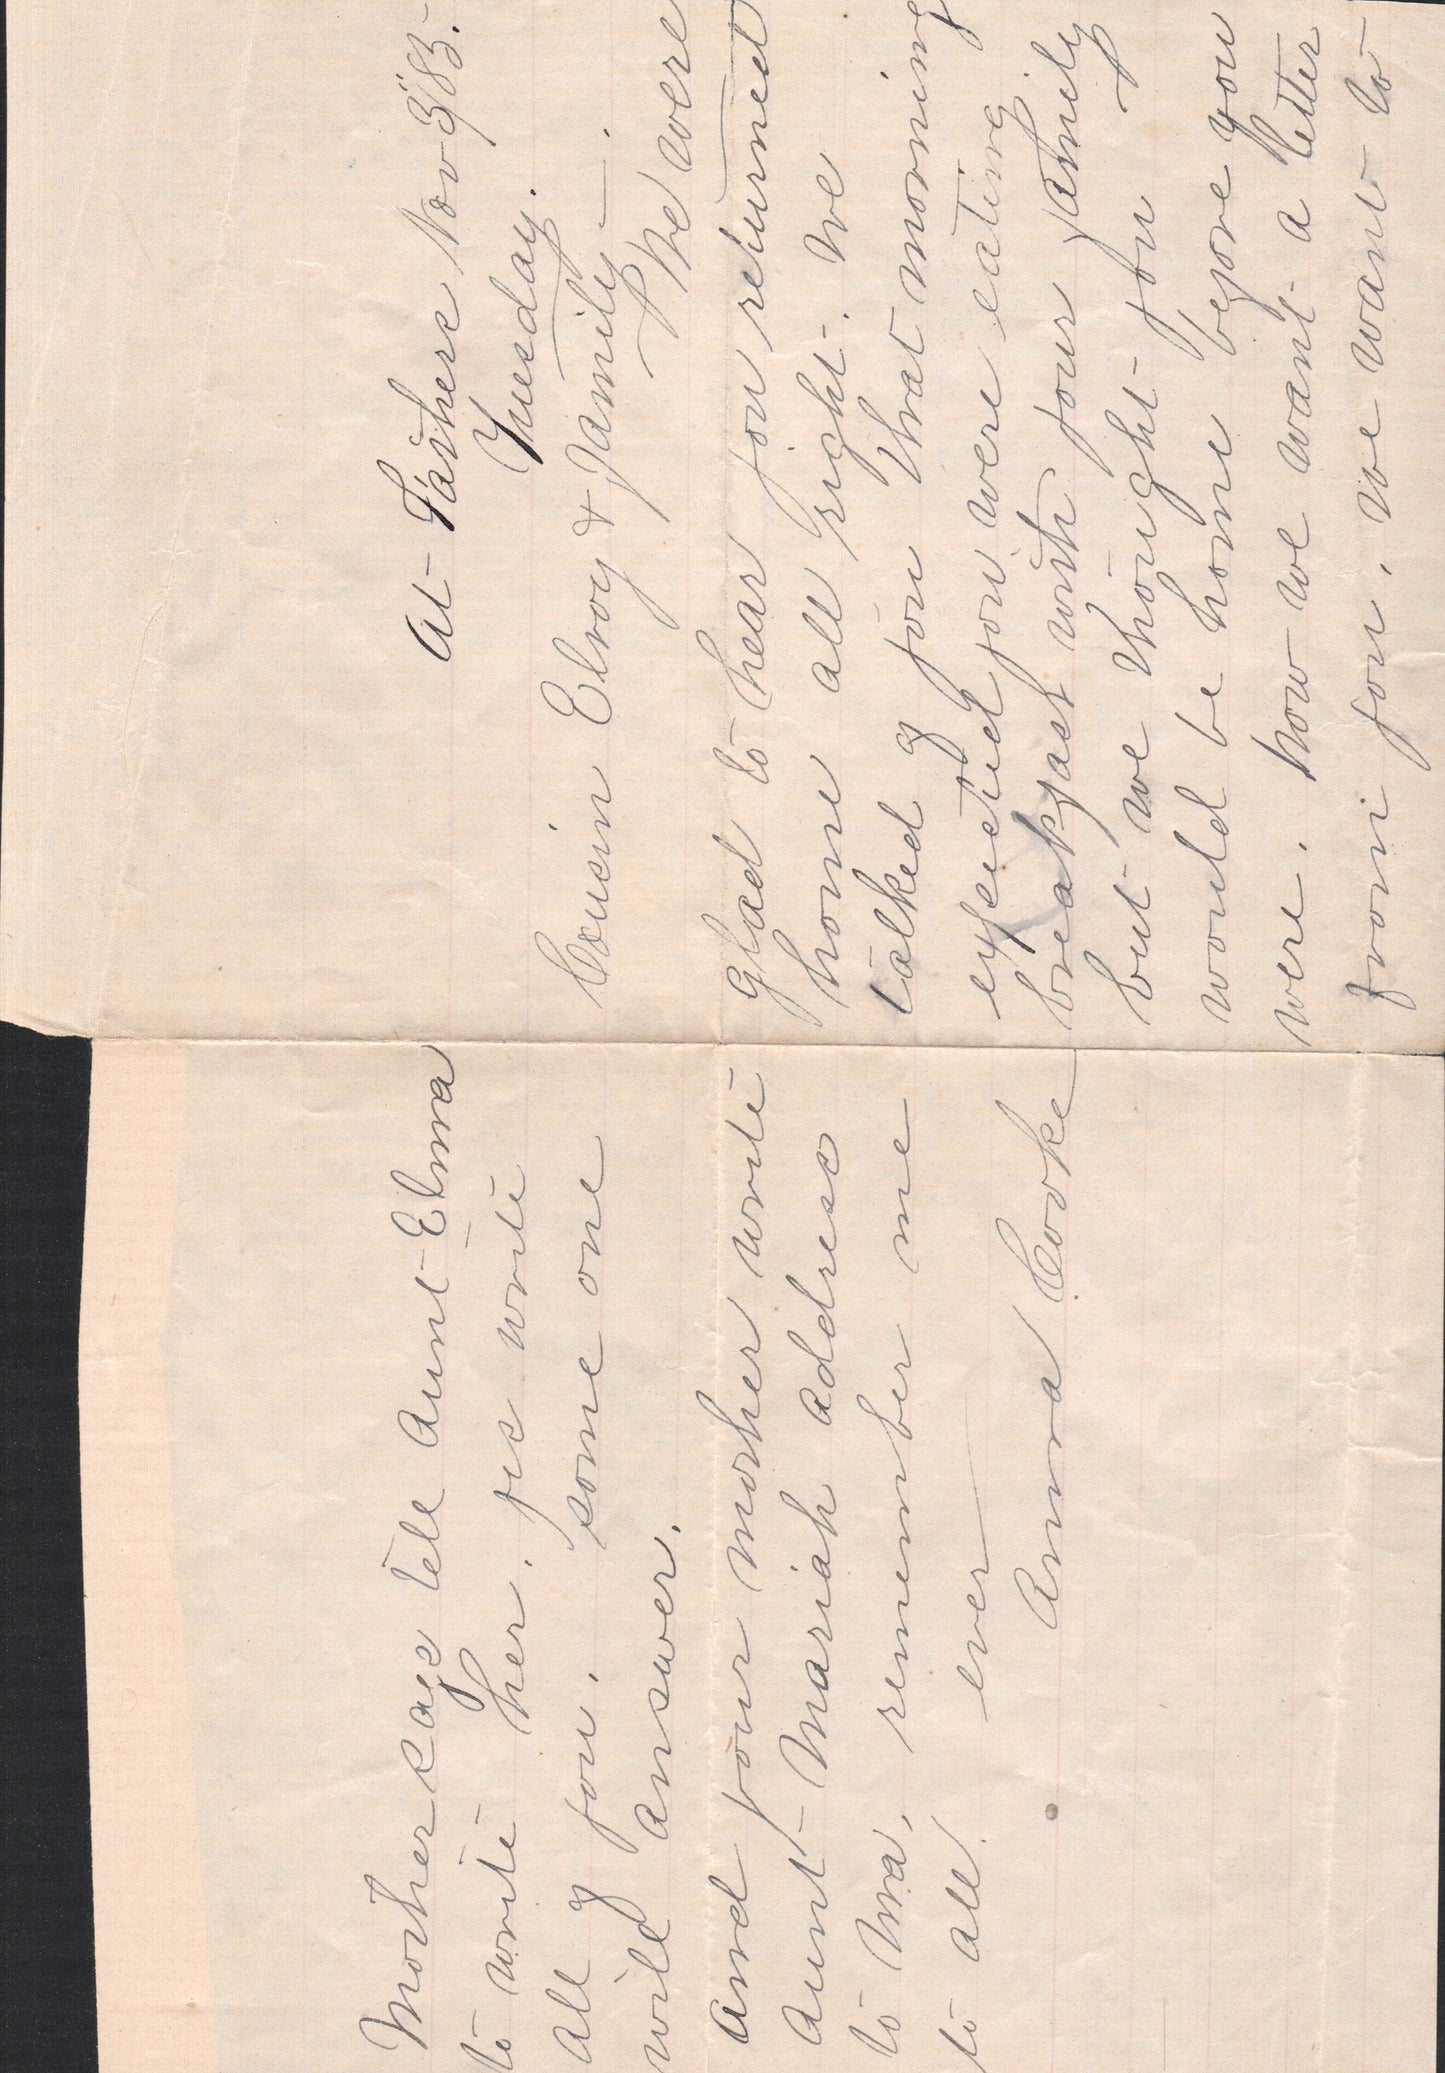 At Fathers Nov 3/85.
Tuesday.
Cousin Elroy & Family.
We were
glad to hear you returned
home all right. we
talked of you that morning
expected you were eating
breakfast with your family
but we thought you
would be home before you
were. now we want a letter
from you. we want to
Mother says tell Aunt Elma
to write her. yes write
all of you. some one
will answer.
And your mother write
Aunt Mariah address
to Ma, remember me
to all. ever
Anna Cooke